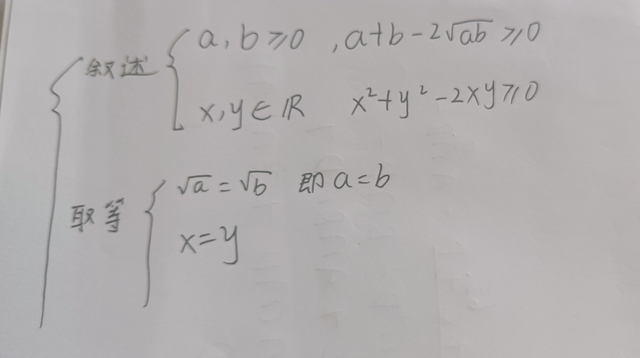 叙述 a, b ≥ 0 , a+b-2√ab ≥ 0
x, y ∈ R x²+y²-2xy ≥ 0
取等 √a = √b 即 a=b
x=y